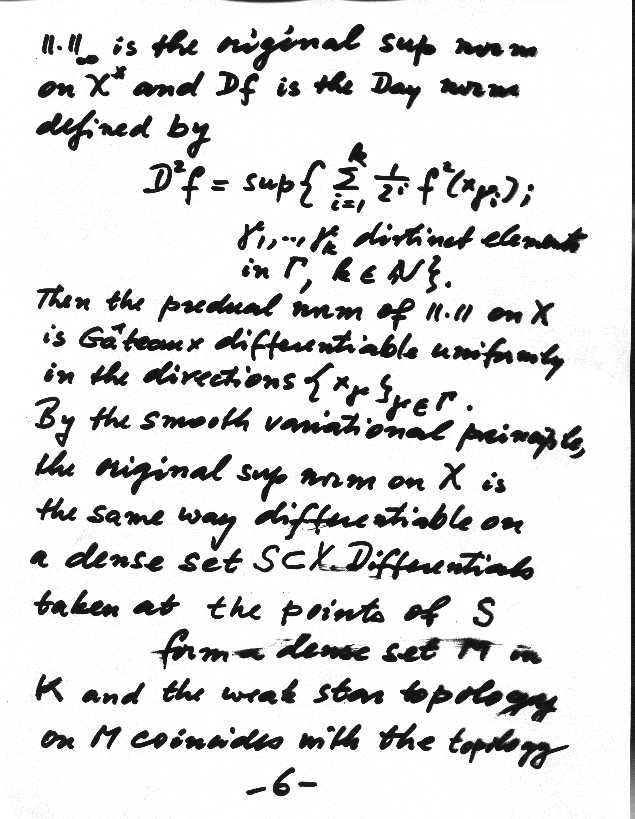 ||.||∞ is the original sup norm
on X* and Df is the Day norm
defined by
D²f = sup{ Σ_{i=1}^{k} 1/2^i f²(x_{γ_i});
γ_1,..,γ_k distinct elements
in Γ, k ∈ N}.
Then the predual norm of ||.|| on X
is Gâteaux differentiable uniformly
in the directions {x_γ}_{γ∈Γ}.
By the smooth variational principle,
the original sup norm on X is
the same way differentiable on
a dense set S⊂X. Differentials
taken at the points of S
form a dense set M in
K and the weak star topology
on M coincides with the topology
-6-